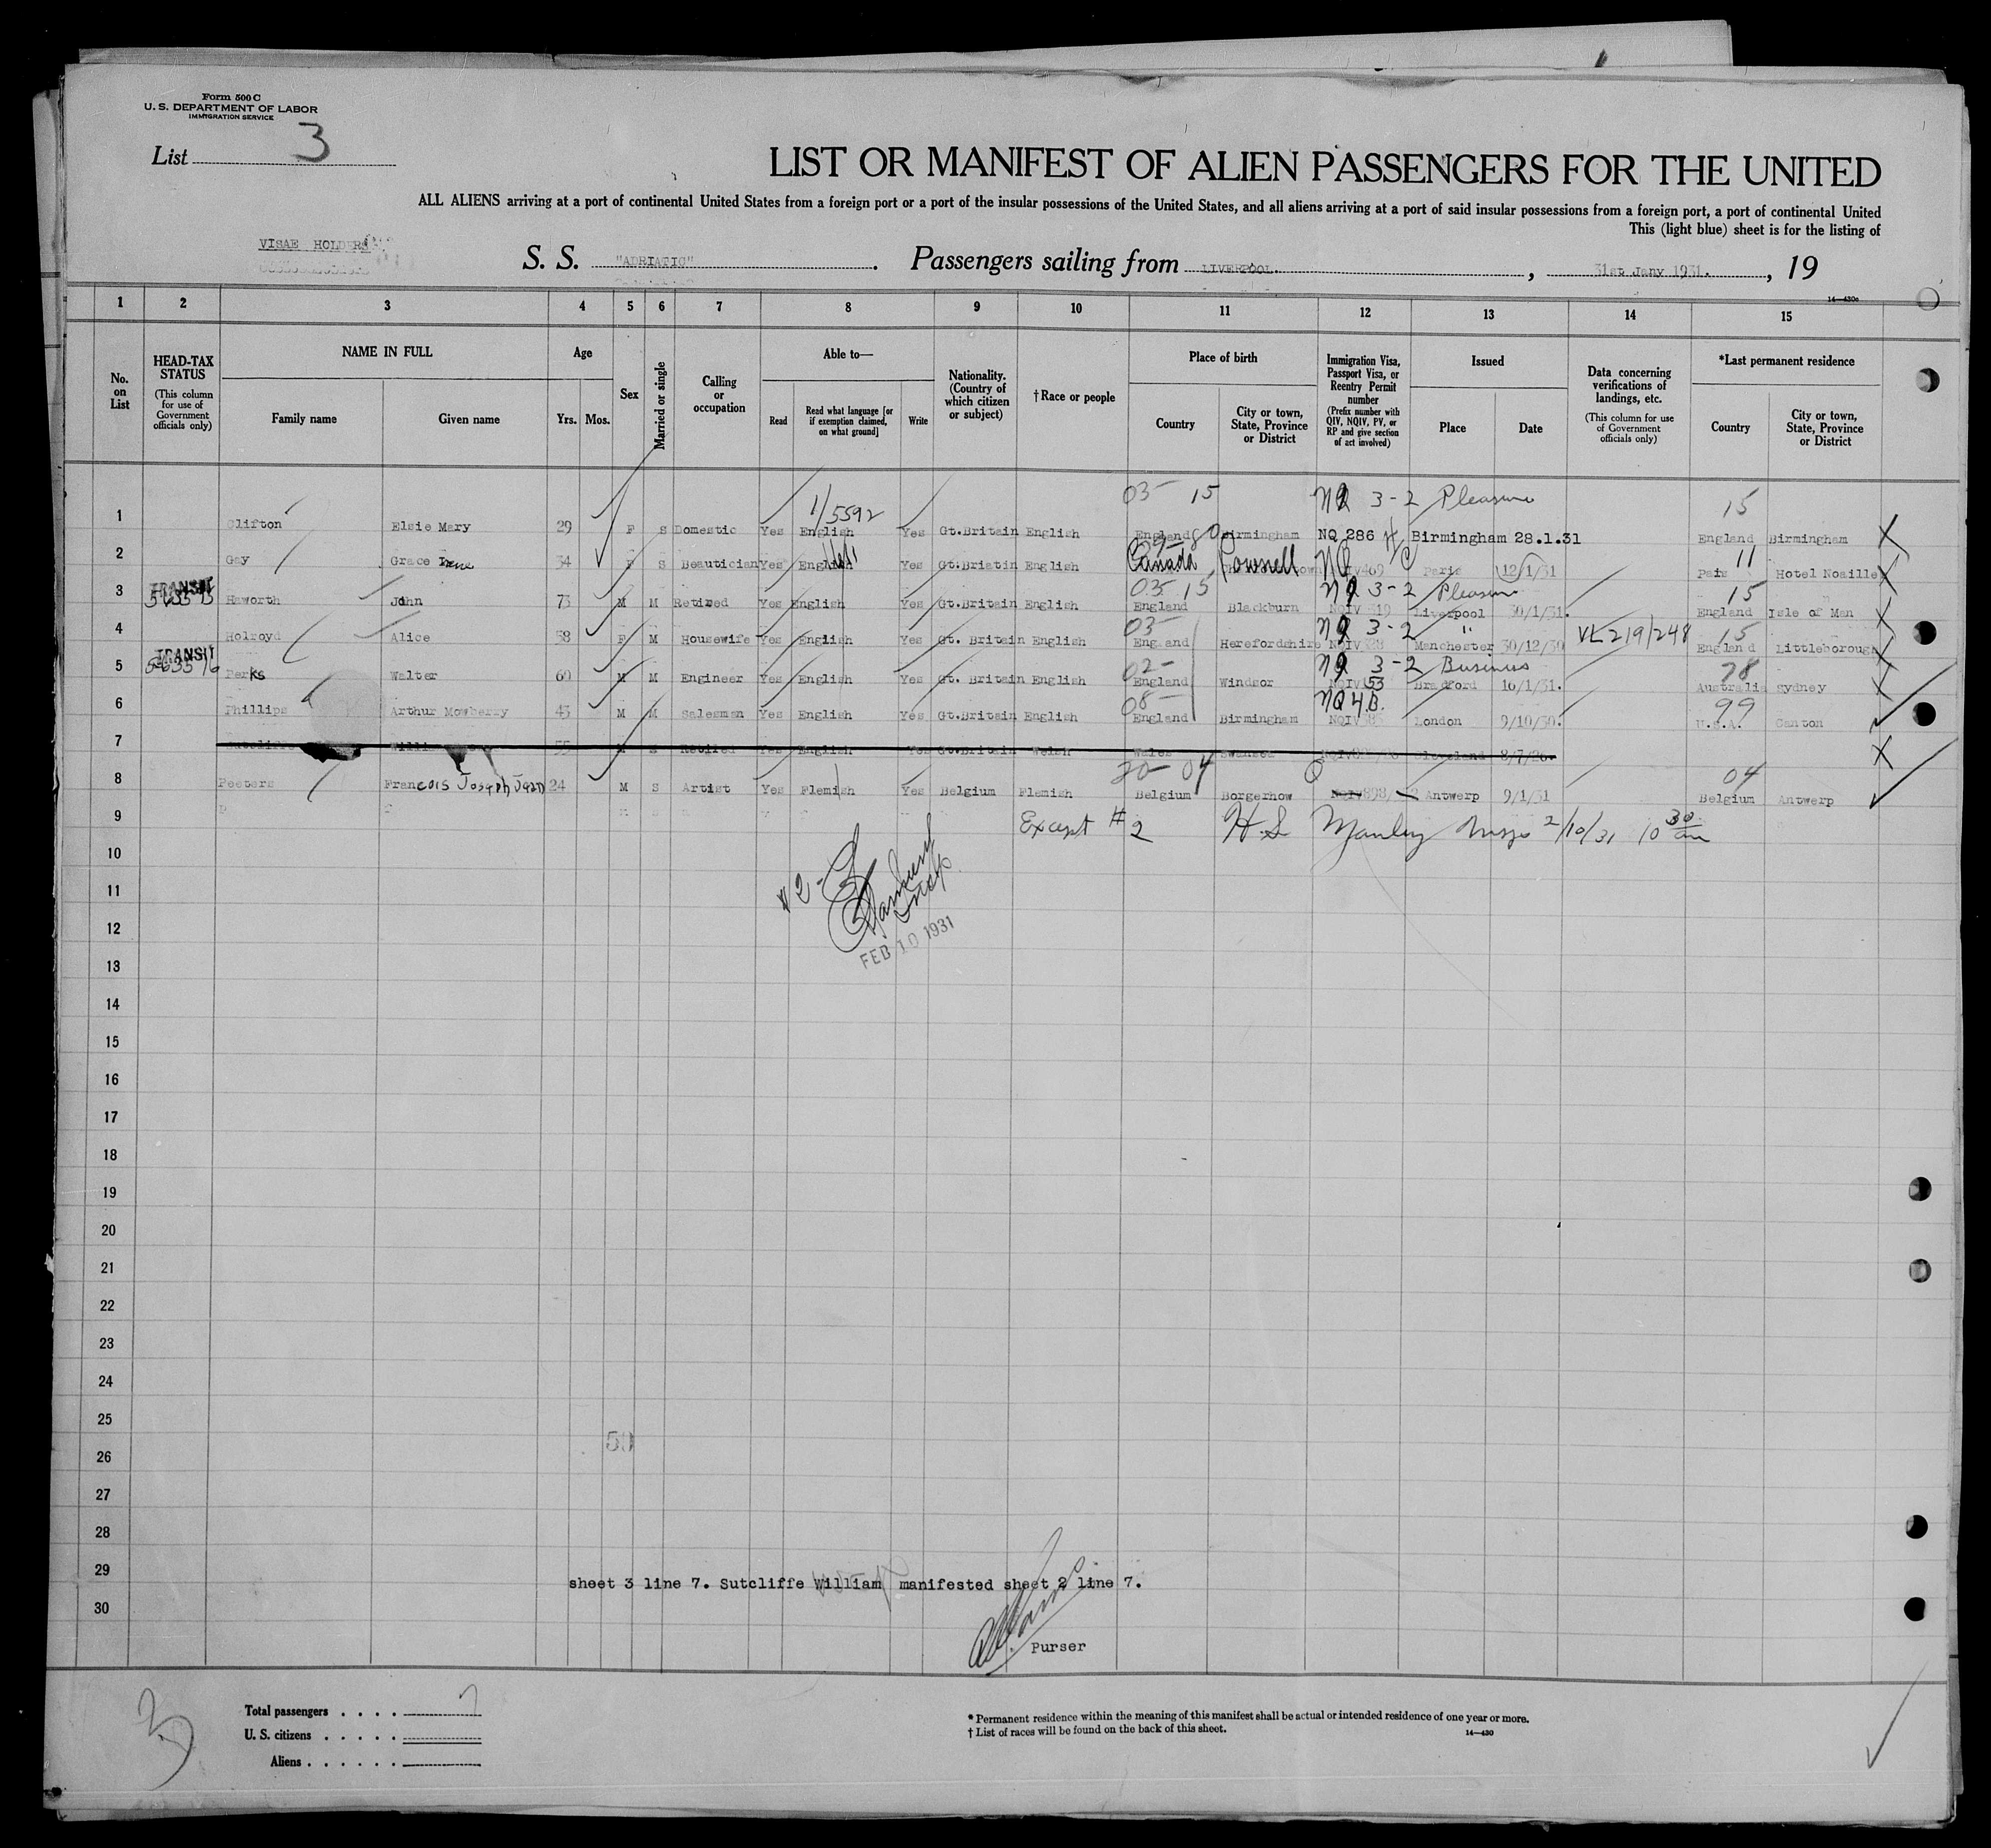 Form 500 C
U. S. DEPARTMENT OF LABOR
IMMIGRATION SERVICE
List 3
LIST OR MANIFEST OF ALIEN PASSENGERS FOR THE UNITED
ALL ALIENS arriving at a port of continental United States from a foreign port or a port of the insular possessions of the United States, and all aliens arriving at a port of said insular possessions from a foreign port, a port of continental United
This (light blue) sheet is for the listing of
VISAE HOLDERS
S. S. "ADRIATIC". Passengers sailing from LIVERPOOL. , 31st Jany 1931. , 19
14—430c
1 2 3 4 5 6 7 8 9 10 11 12 13 14 15
No. on List
HEAD-TAX STATUS
(This column for use of Government officials only)
NAME IN FULL
Family name
Given name
Age
Yrs. Mos.
Sex
Married or single
Calling or occupation
Able to—
Read
Read what language [or if exemption claimed, on what ground]
Write
Nationality. (Country of which citizen or subject)
†Race or people
Place of birth
Country
City or town, State, Province or District
Immigration Visa, Passport Visa, or Reentry Permit number
(Prefix number with QIV, NQIV, PV, or RP and give section of act involved)
Issued
Place
Date
Data concerning verifications of landings, etc.
(This column for use of Government officials only)
*Last permanent residence
Country
City or town, State, Province or District
1/5592 03- 15 NQ 3-2 Pleasure 15
1 Clifton Elsie Mary 29 F S Domestic Yes English Yes Gt.Britain English England Birmingham NQ 286 Birmingham 28.1.31 England Birmingham X
2 Gay Grace Irene 34 F S Beautician Yes English Yes Gt.Briatin English Canada Pownell NQIV469 Paris 12/1/31 Pais 11 Hotel Noailles X
TRANSIT 03- 15 NQ 3-2 Pleasure 15
3 Haworth John 73 M M Retired Yes English Yes Gt.Britain English England Blackburn NQIV 319 Liverpool 30/1/31. England Isle of Man X
03- NQ 3-2 " VL219/248 15
4 Holroyd Alice 58 F M Housewife Yes English Yes Gt. Britain English England Herefordshire NQIV328 Manchester 30/12/30 England Littleborough X
TRANSIT 02- NQ 3-2 Business 78
5 Perks Walter 60 M M Engineer Yes English Yes Gt. Britain English England Windsor NQIV153 Bradford 16/1/31. Australia Sydney X
08- NQ 4.B. 99
6 Phillips Arthur Mowberry 43 M M Salesman Yes English Yes Gt.Britain English England Birmingham NQIV385 London 9/10/30. U.S.A. Canton
7 Sutcliffe William 55 M M Retired Yes English Yes Gt.Britain Welsh Wales Swansea Cleveland 8/7/26. X
20- 04 04
8 Peeters Francois Joseph Jean 24 M S Artist Yes Flemish Yes Belgium Flemish Belgium Borgerhow 898 Antwerp 9/1/31 Belgium Antwerp
9 Except #2 H.S. Manley Insp 2/10/31 10 30 am
10
#2-
11
12
FEB 10 1931
13
14
15
16
17
18
19
20
21
22
23
24
25
50
26
27
28
29 sheet 3 line 7. Sutcliffe William manifested sheet 2 line 7.
30
Purser
3
Total passengers . . . . 7
U. S. citizens . . . . .
Aliens . . . . . .
* Permanent residence within the meaning of this manifest shall be actual or intended residence of one year or more.
† List of races will be found on the back of this sheet.
14—430